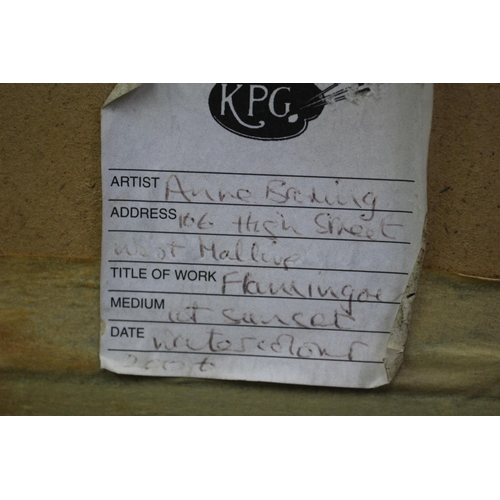 KPG.
ARTIST Anne
ADDRESS 106 High Street
West Malling
TITLE OF WORK Flamingoe
MEDIUM at sunset
DATE Watercolour